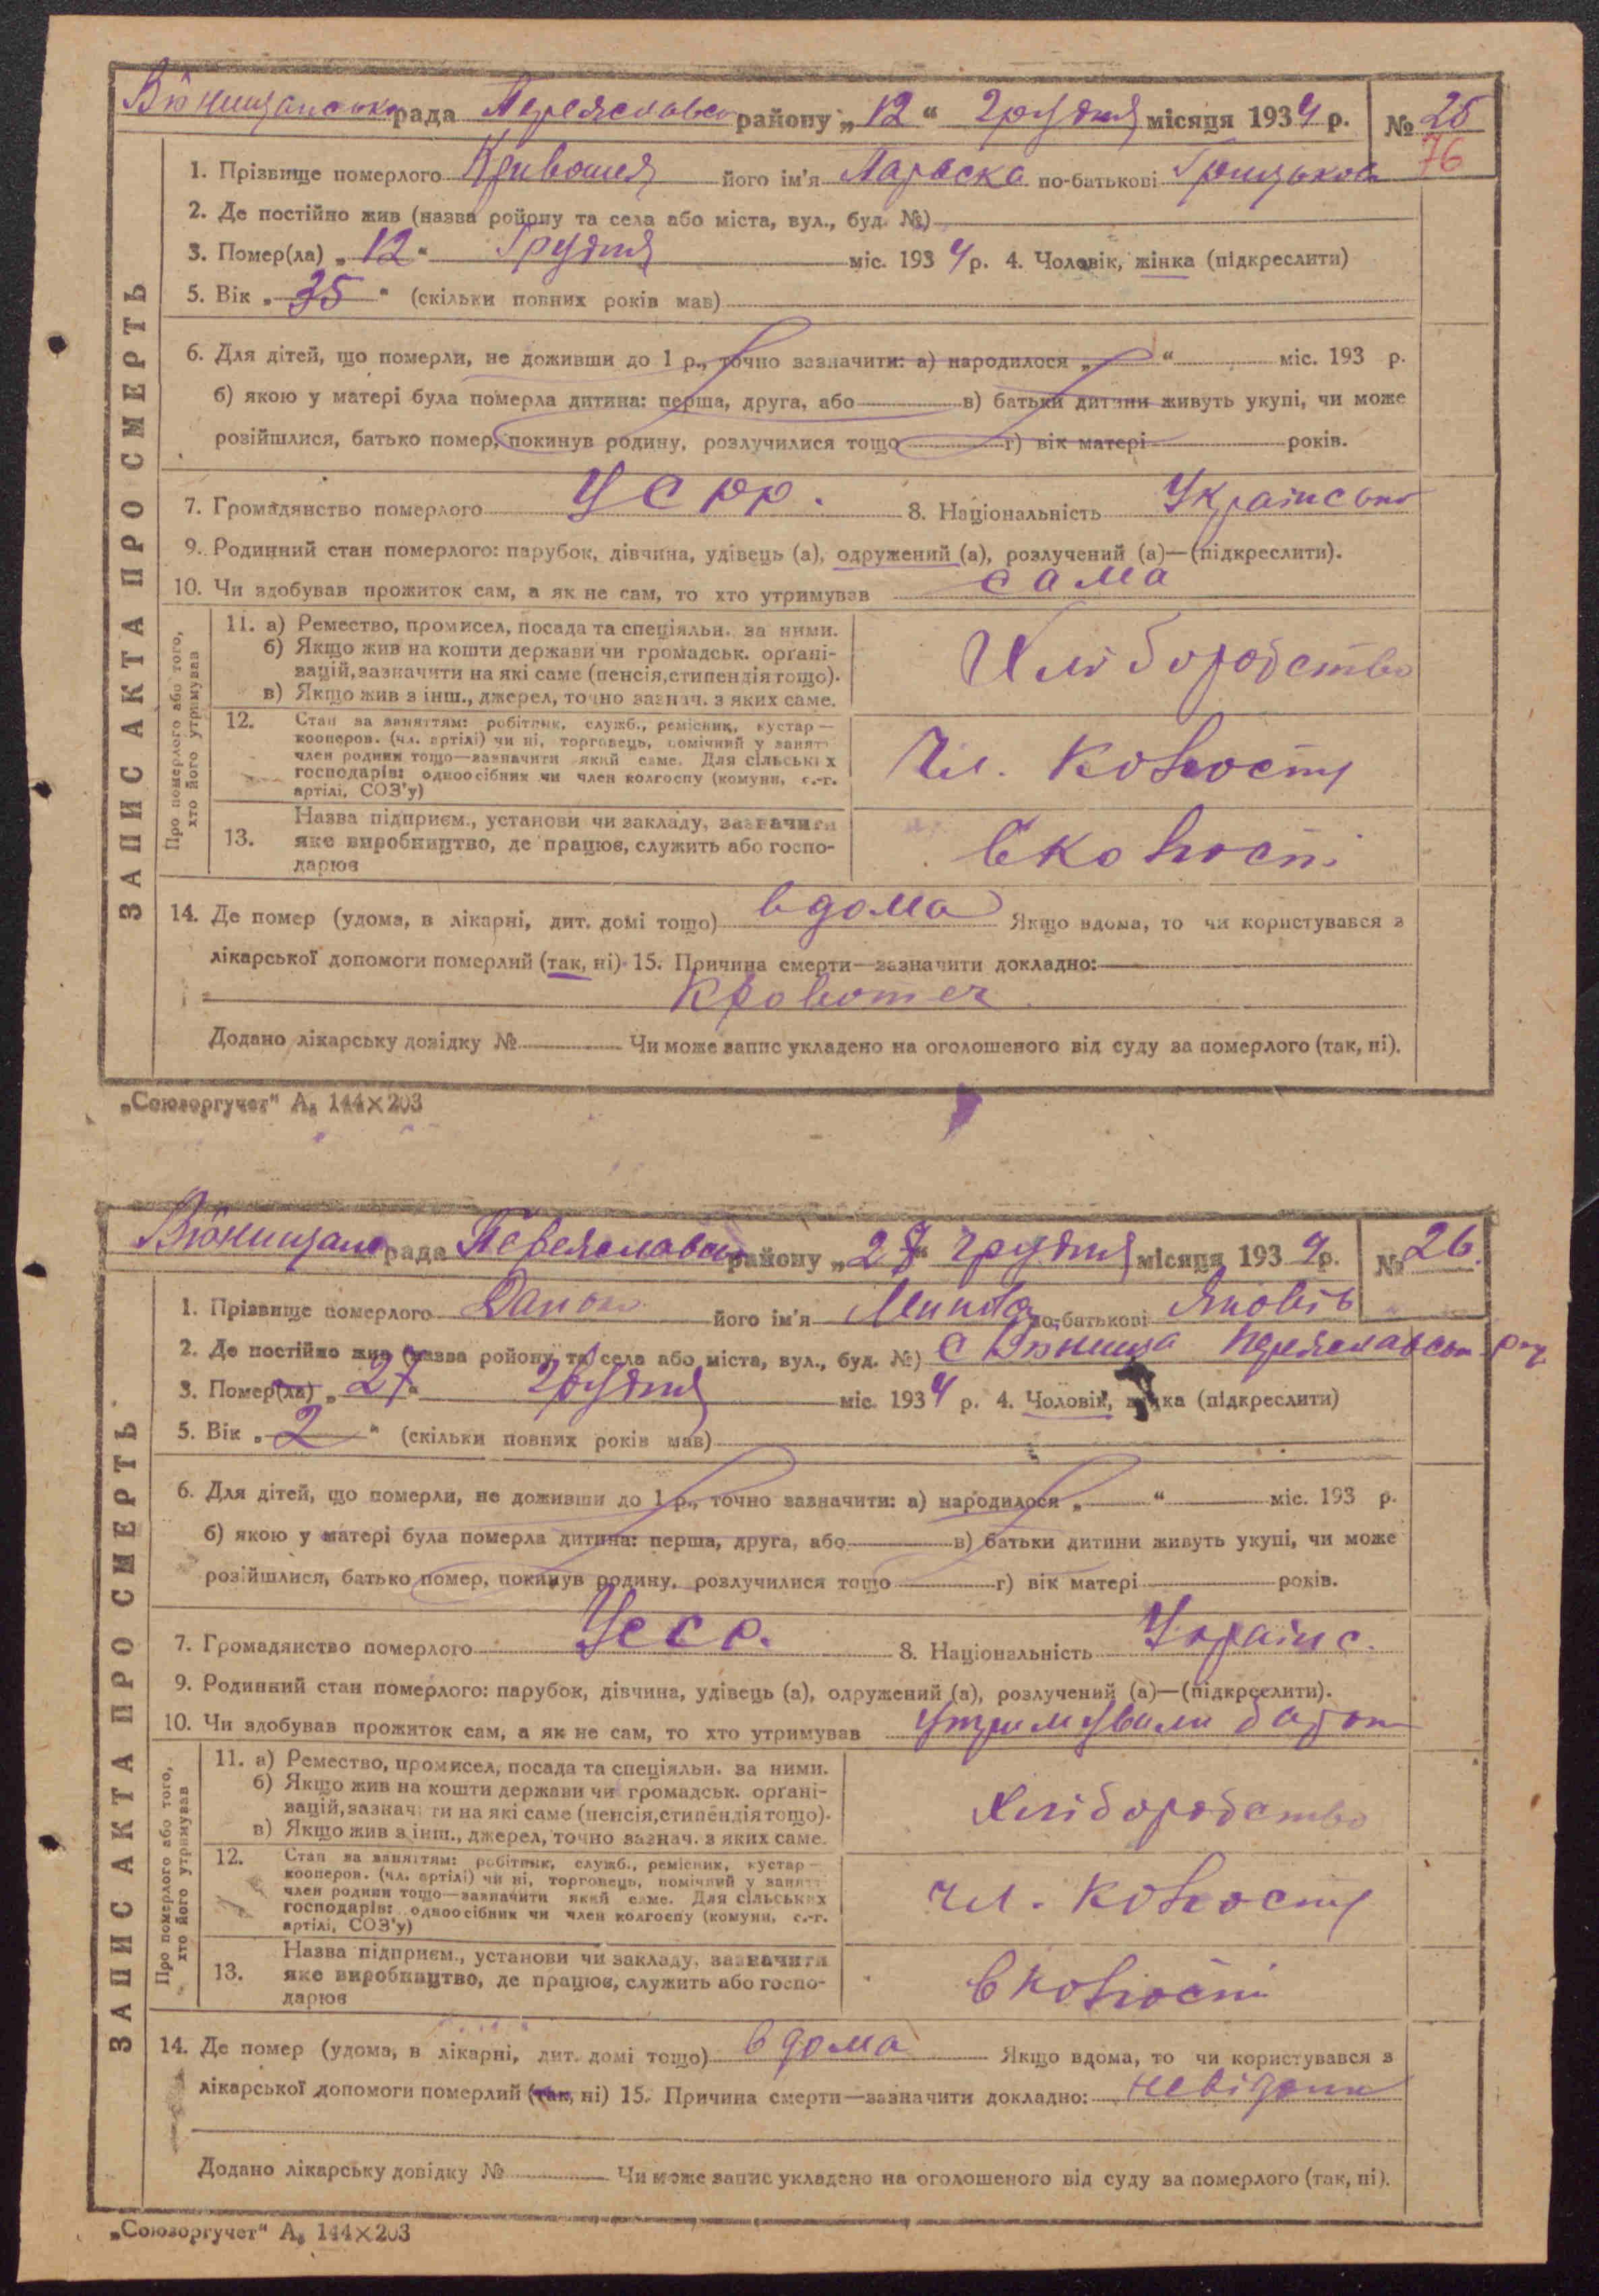 рада району „12“ Грудня місяця 1934 р. № 25
76
1. Прізвище померлого Кривошея його ім'я Параска по-батькові
2. Де постійно жив (назва ройону та села або міста, вул., буд. №)
3. Помер(ла) „12“ Грудня міс. 1934 р. 4. Чоловік, жінка (підкреслити)
5. Вік „35“ (скільки повних років мав)
6. Для дітей, що померли, не доживши до 1 р., точно зазначити: а) народилося „ “ міс. 193 р.
б) якою у матері була померла дитина: перша, друга, або в) батьки дитини живуть укупі, чи може
розійшлися, батько помер, покинув родину, розлучилися тощо г) вік матері років.
7. Громадянство померлого УСРР. 8. Національність
9. Родинний стан померлого: парубок, дівчина, удівець (а), одружений (а), розлучений (а)—(підкреслити).
10. Чи здобував прожиток сам, а як не сам, то хто утримував сама
ЗАПИС АКТА ПРО СМЕРТЬ
Про померлого або того, хто його утримував
11. а) Ремество, промисел, посада та спеціяльн. за ними.
б) Якщо жив на кошти держави чи громадськ. орґані-
зацій, зазначити на які саме (пенсія, стипендія тощо).
в) Якщо жив з інш., джерел, точно зазнач. з яких саме.
Хліборобство
12. Стан за заняттям: робітник, служб., ремісник, кустар —
кооперов. (чл. артілі) чи ні, торговець, помічний у занятт
член родини тощо—зазначити який саме. Для сільських
господарів: одноосібник чи член колгоспу (комуни, с.-г.
артілі, СОЗ'у)
Чл. Колгоспу
13. Назва підприєм., установи чи закладу, зазначити
яке виробництво, де працює, служить або госпо-
дарює
в колгоспі
14. Де помер (удома, в лікарні, дит. домі тощо) вдома Якщо вдома, то чи користувався з
лікарської допомоги померлий (так, ні) 15. Причина смерти—зазначити докладно:
Кровотеч
Додано лікарську довідку № Чи може запис укладено на оголошеного від суду за померлого (так, ні).
„Союзоргучет“ А₅ 144×203
рада району „27“ грудня місяця 1934 р. № 26
1. Прізвище померлого його ім'я по-батькові Яковів
2. Де постійно жив (назва ройону та села або міста, вул., буд. №) с Вюнища
3. Помер(ла) „27“ Грудня міс. 1934 р. 4. Чоловік, жінка (підкреслити)
5. Вік „2“ (скільки повних років мав)
6. Для дітей, що померли, не доживши до 1 р., точно зазначити: а) народилося „ “ міс. 193 р.
б) якою у матері була померла дитина: перша, друга, або в) батьки дитини живуть укупі, чи може
розійшлися, батько помер, покинув родину, розлучилися тощо г) вік матері років.
7. Громадянство померлого УССР. 8. Національність Українс.
9. Родинний стан померлого: парубок, дівчина, удівець (а), одружений (а), розлучений (а)—(підкреслити).
10. Чи здобував прожиток сам, а як не сам, то хто утримував утримували
ЗАПИС АКТА ПРО СМЕРТЬ
Про померлого або того, хто його утримував
11. а) Ремество, промисел, посада та спеціяльн. за ними.
б) Якщо жив на кошти держави чи громадськ. орґані-
зацій, зазначити на які саме (пенсія, стипендія тощо).
в) Якщо жив з інш., джерел, точно зазнач. з яких саме.
Хліборобство
12. Стан за заняттям: робітник, служб., ремісник, кустар —
кооперов. (чл. артілі) чи ні, торговець, помічний у занятт
член родини тощо—зазначити який саме. Для сільських
господарів: одноосібник чи член колгоспу (комуни, с.-г.
артілі, СОЗ'у)
чл. колгоспу
13. Назва підприєм., установи чи закладу, зазначити
яке виробництво, де працює, служить або госпо-
дарює
в колгоспі
14. Де помер (удома, в лікарні, дит. домі тощо) вдома Якщо вдома, то чи користувався з
лікарської допомоги померлий (так, ні) 15. Причина смерти—зазначити докладно:
Додано лікарську довідку № Чи може запис укладено на оголошеного від суду за померлого (так, ні).
„Союзоргучет“ А₅ 144×203